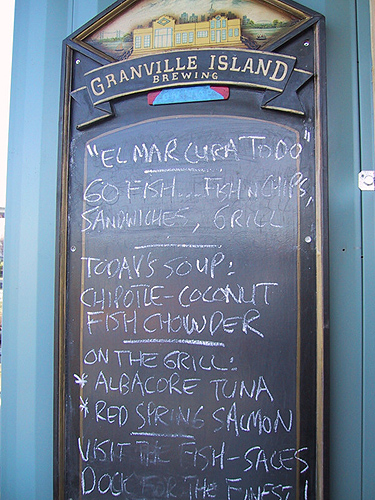 GRANVILLE ISLAND
BREWING
"EL MAR CURA TODO"
GO FISH... FISH N CHIPS,
SANDWICHES, GRILL
TODAY'S SOUP:
CHIPOTLE-COCONUT
FISH CHOWDER
ON THE GRILL:
* ALBACORE TUNA
* RED SPRING SALMON
VISIT THE FISH-SALES
DOCK FOR THE FINEST!